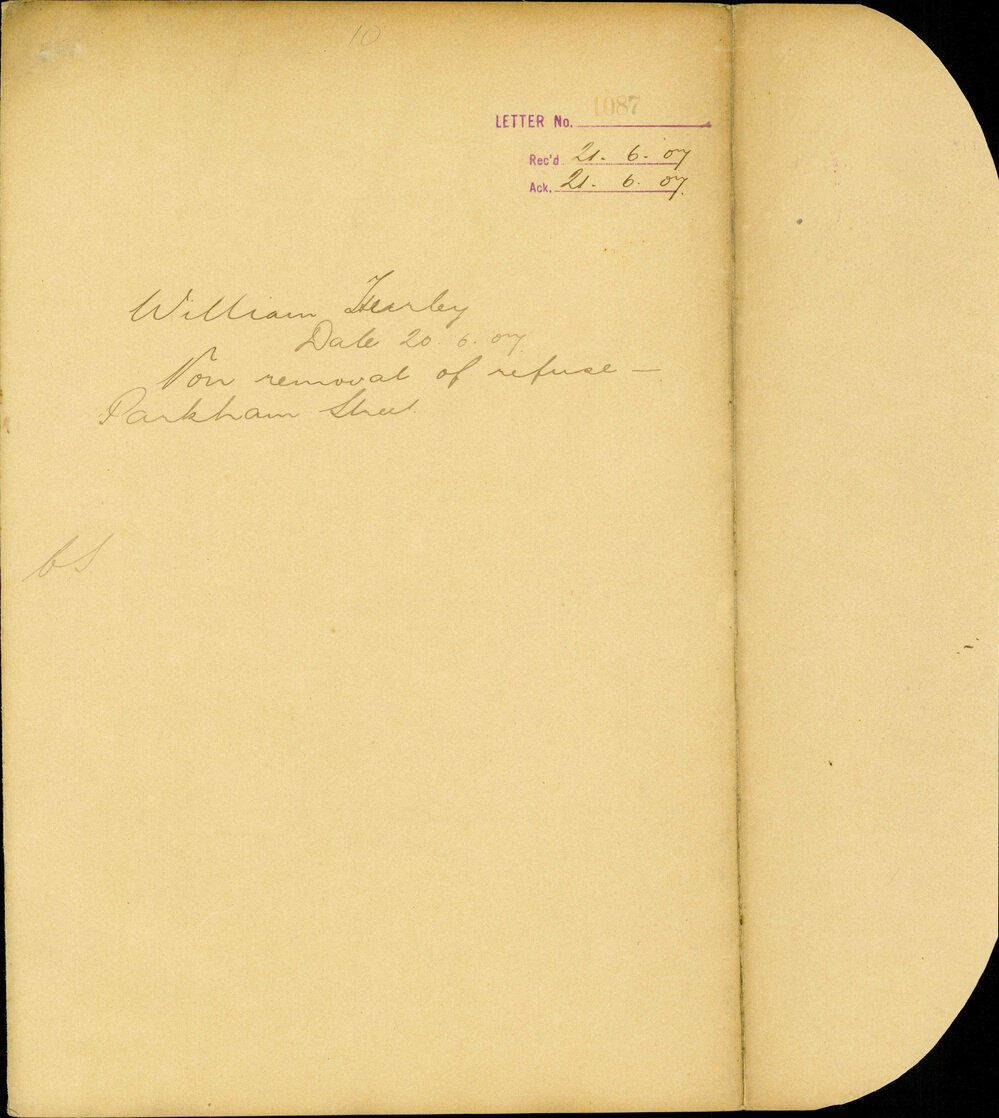 10
1087
LETTER No.
Rec'd 21. 6. 07
Ack. 21. 6. 07.
William
Date 20. 6. 07
Non removal of refuse —
Parkham Street.